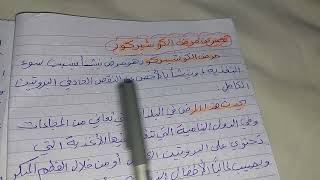 تعريف مرض الكواشيركور
مرض الكواشيركور هو مرض ينشأ بسبب سوء
التغذية وينشأ بالأخص من النقص الحاد في البروتين
الكامل
يحدث هذا المرض في البلدان التي تعاني من المجاعات
وهي الدول النامية التي تنقصها الأغذية التي
تحتوي على البروتين أو من خلال الفطم المبكر
ويصيب غالباً الأطفال